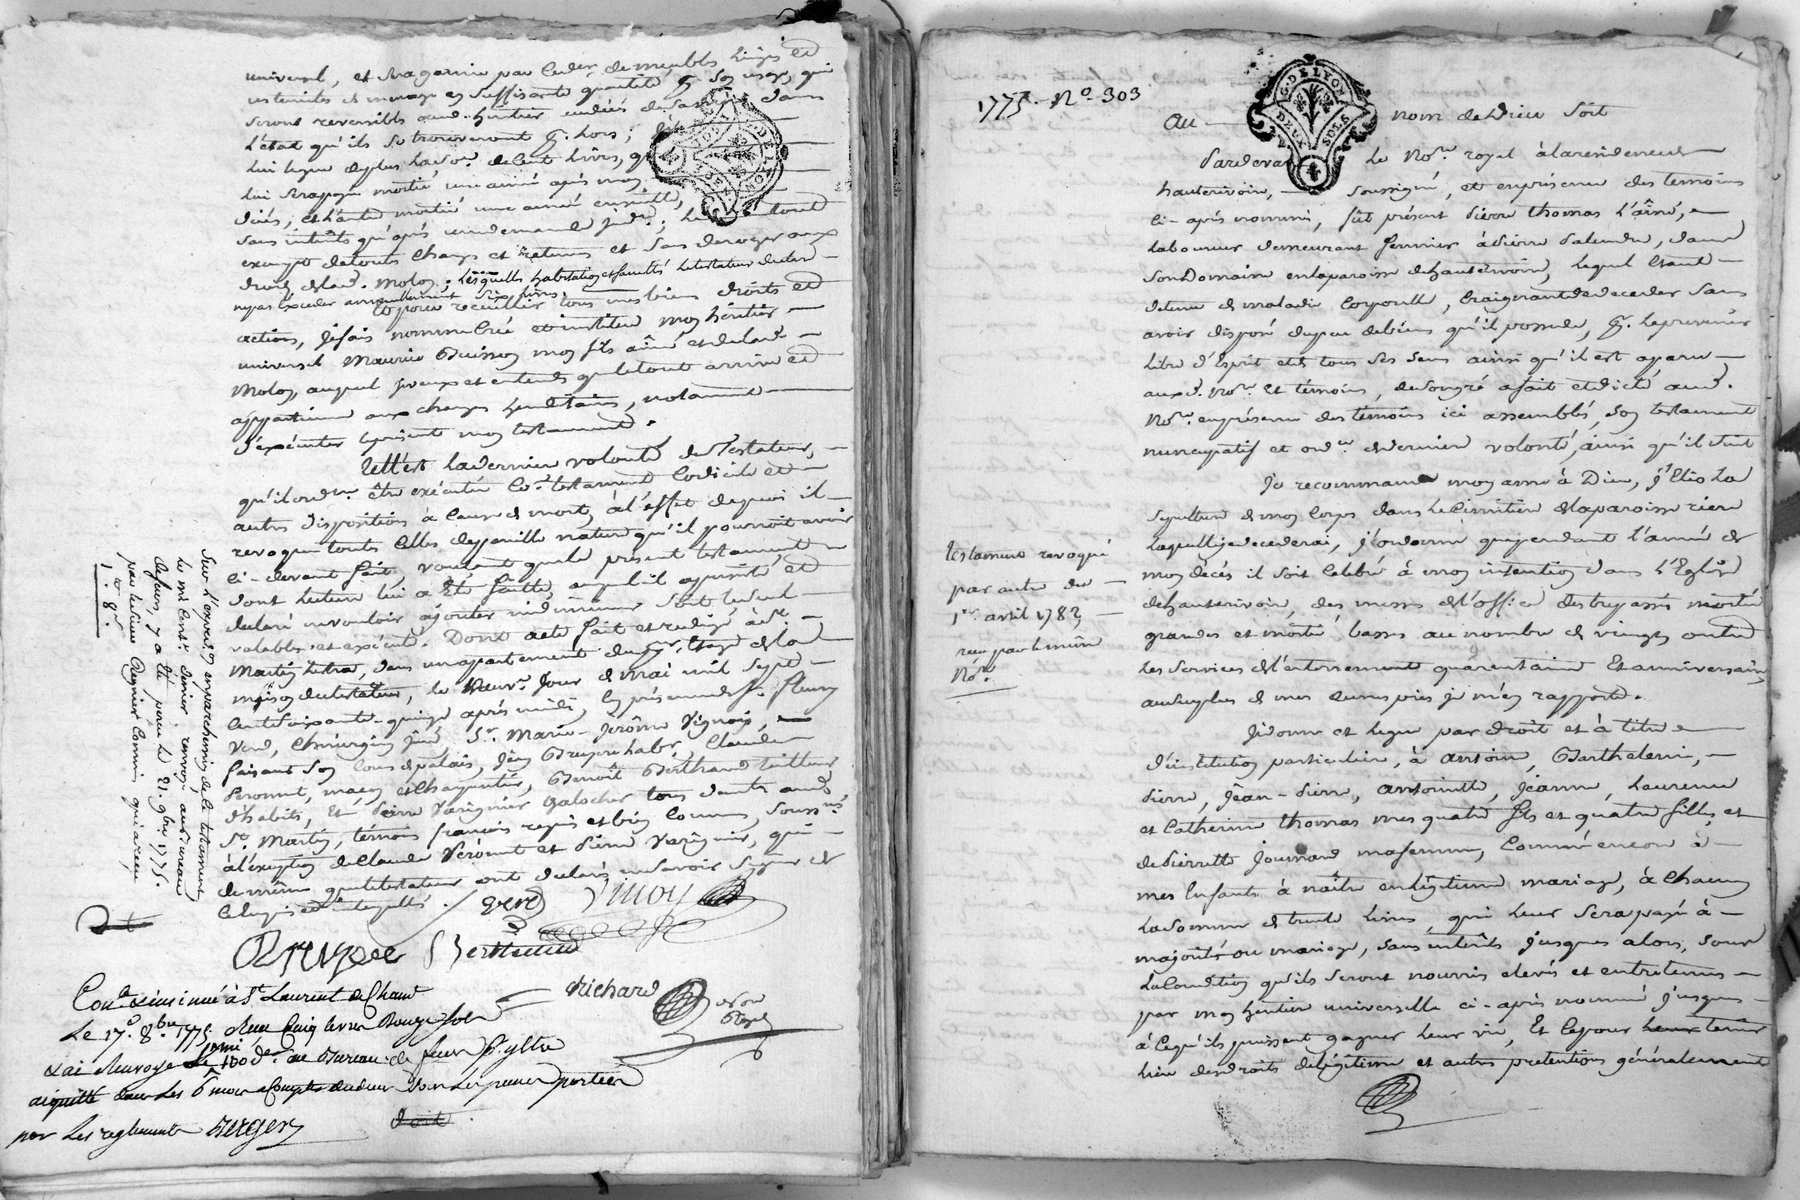 universel, et sera garnie par led. de meubles linges et
ustenciles de menage en suffisante quantité
seront reversibles aud. héritier
l'état qu'ils se trouveront
lui legue de plus la so.e de cent livres,
lui sera payée moitié une année après mon
décès, et l'autre moitié une année ensuitte,
sans intérêts qu'après une demande jud.re;
exempt de touts charges et retenues et sans déroger aux
droits de lad. Moloz; lesquelles habitation et facultés le testateur declare
n'exceder annuellement six livres.
et pour recueillir tous mes biens droits et
actions, je fais nomme créé et institue mon héritier
universel Maurice Buisson mon fils ainé et de lad.
Moloz, auquel je veux et entends que le tout arrive et
appartienne aux charges hereditaires, notamment
d'exécuter le présent mon testament.
Telle est la derniere volonté du Testateur,
qu'il ord.ne être exécutée par testament codicile et
autres dispositions à cause de mort, à l'effet de quoi il
revoque toutes celles de pareille nature qu'il pourroit avoir
ci-devant fait voulant que le présent testament
dont lecture lui a été faitte, auquel il a persisté et
declaré ne vouloir ajouter ni diminuer soit le seul
valable et exécuté. Dont acte fait et redigé à St.
Martin Lestra, dans un appartement du 1er étage de la
maison du testateur, le neuv.e jour de mai mil sept
cent soixante-quinze après midi, en présence de s.r fleury
Verd, chirurgien juré s.r Marie-Jerôme Vignois,
faisant son cours de palais, Jean Bruyere habr, Claude
Peronnet, maçon et charpentier, Benoît Berthaud tailleur
d'habits, Et Pierre Varignier galocher tous dem.ts aud.
St. Martin, témoins françois requis et bien connus, souss.nés
à l'exception de Claude Peronnet et Pierre Varignier, qui
de même que le testateur ont declaré ne savoir signer de
ce enquis et interpellés.
Verd
Bruyere Berthaud
Richard
no.re
Royal
Con.lé & insinué à St. Laurent de Cham.
Le 17.e 8.bre 1775. Reçu Cinq livres douze sols
& ai renvoyé le 100.e d.er au Bureau de
dans les 6 mois
par les reglements Berger
Sur l'expedion en parchemin de ce testament
le mi cent.e denier renvoyé au bureau
de feurs, y a été perçu le 21. 9bre 1775.
par le sieur Regnier Commis qui a reçu
1.# 8.s
1775. N.o 303
G. DE LYON
DEUX SOLS
4
Au nom de Dieu soit
Pardevant Le No.re royal à la residence de
hauterivoire, soussigné, et en présence des temoins
ci-après nommés, fût présent Pierre thomas L'aîné,
laboureur demeurant fermier à Pierre Salendre, dans
son Domaine en la paroisse d'hauterivoire, lequel étant
detenu de maladie corporelle, craignant de deceder sans
avoir disposé du peu de biens qu'il possede, p.r le present
libre d'Esprit et de tous ses sens ainsi qu'il est aparu
auxd. No.re et témoins, de son gré a fait et dicté aud.
No.re en présence des temoins ici assemblés, son testament
nuncupatif et ord.ce de derniere volonté, ainsi qu'il suit
Je recommande mon ame à Dieu, j'Elis la
sepulture de mon corps dans le Cimetiere de la paroisse riere
laquelle je decederai, j'ordonne que pendant l'année de
mon décès il soit celebré à mon intention dans l'Eglise
d'hauterivoire, des messes de l'office des trepassés moitié
grandes et moitié basses au nombre de vingt, outre
les services de l'enterrement quarantaine et anniversaire
au surplus de mes œuvres pies je m'en rapporte.
Je donne et legue par droit et à titre
d'institution particuliere, à antoine, Barthelemi,
Pierre, Jean-Pierre, antoinette, jeanne, Laurence
et Catherine thomas mes quatre fils et quatre filles, et
de Pierrette Journard ma femme, comme encore à
mes Enfants à naître en légitime mariage, à chacun
la somme de trente livres qui leur sera payé à
majorité ou mariage, sans intérêts jusques alors, sous
la condition qu'ils seront nourris elevés et entretenus
par mon héritier universelle ci-après nommé jusques
à ce qu'ils puissent gagner leur vie, Et ce pour leur tenir
lieu des droits de légitime et autres pretentions généralement
testament revoqué
par autre du
1er avril 1782,
reçu par le même
No.re